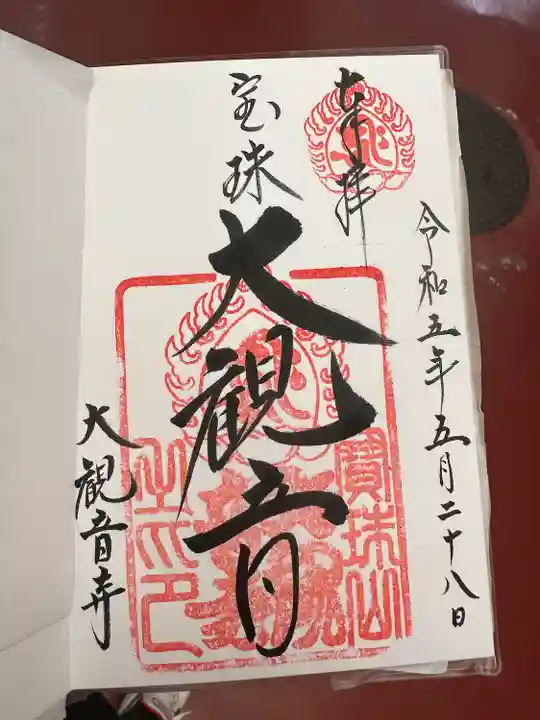 奉拝
令和五年五月二十八日
宝珠
大観音
大観音寺
寶珠山
之印